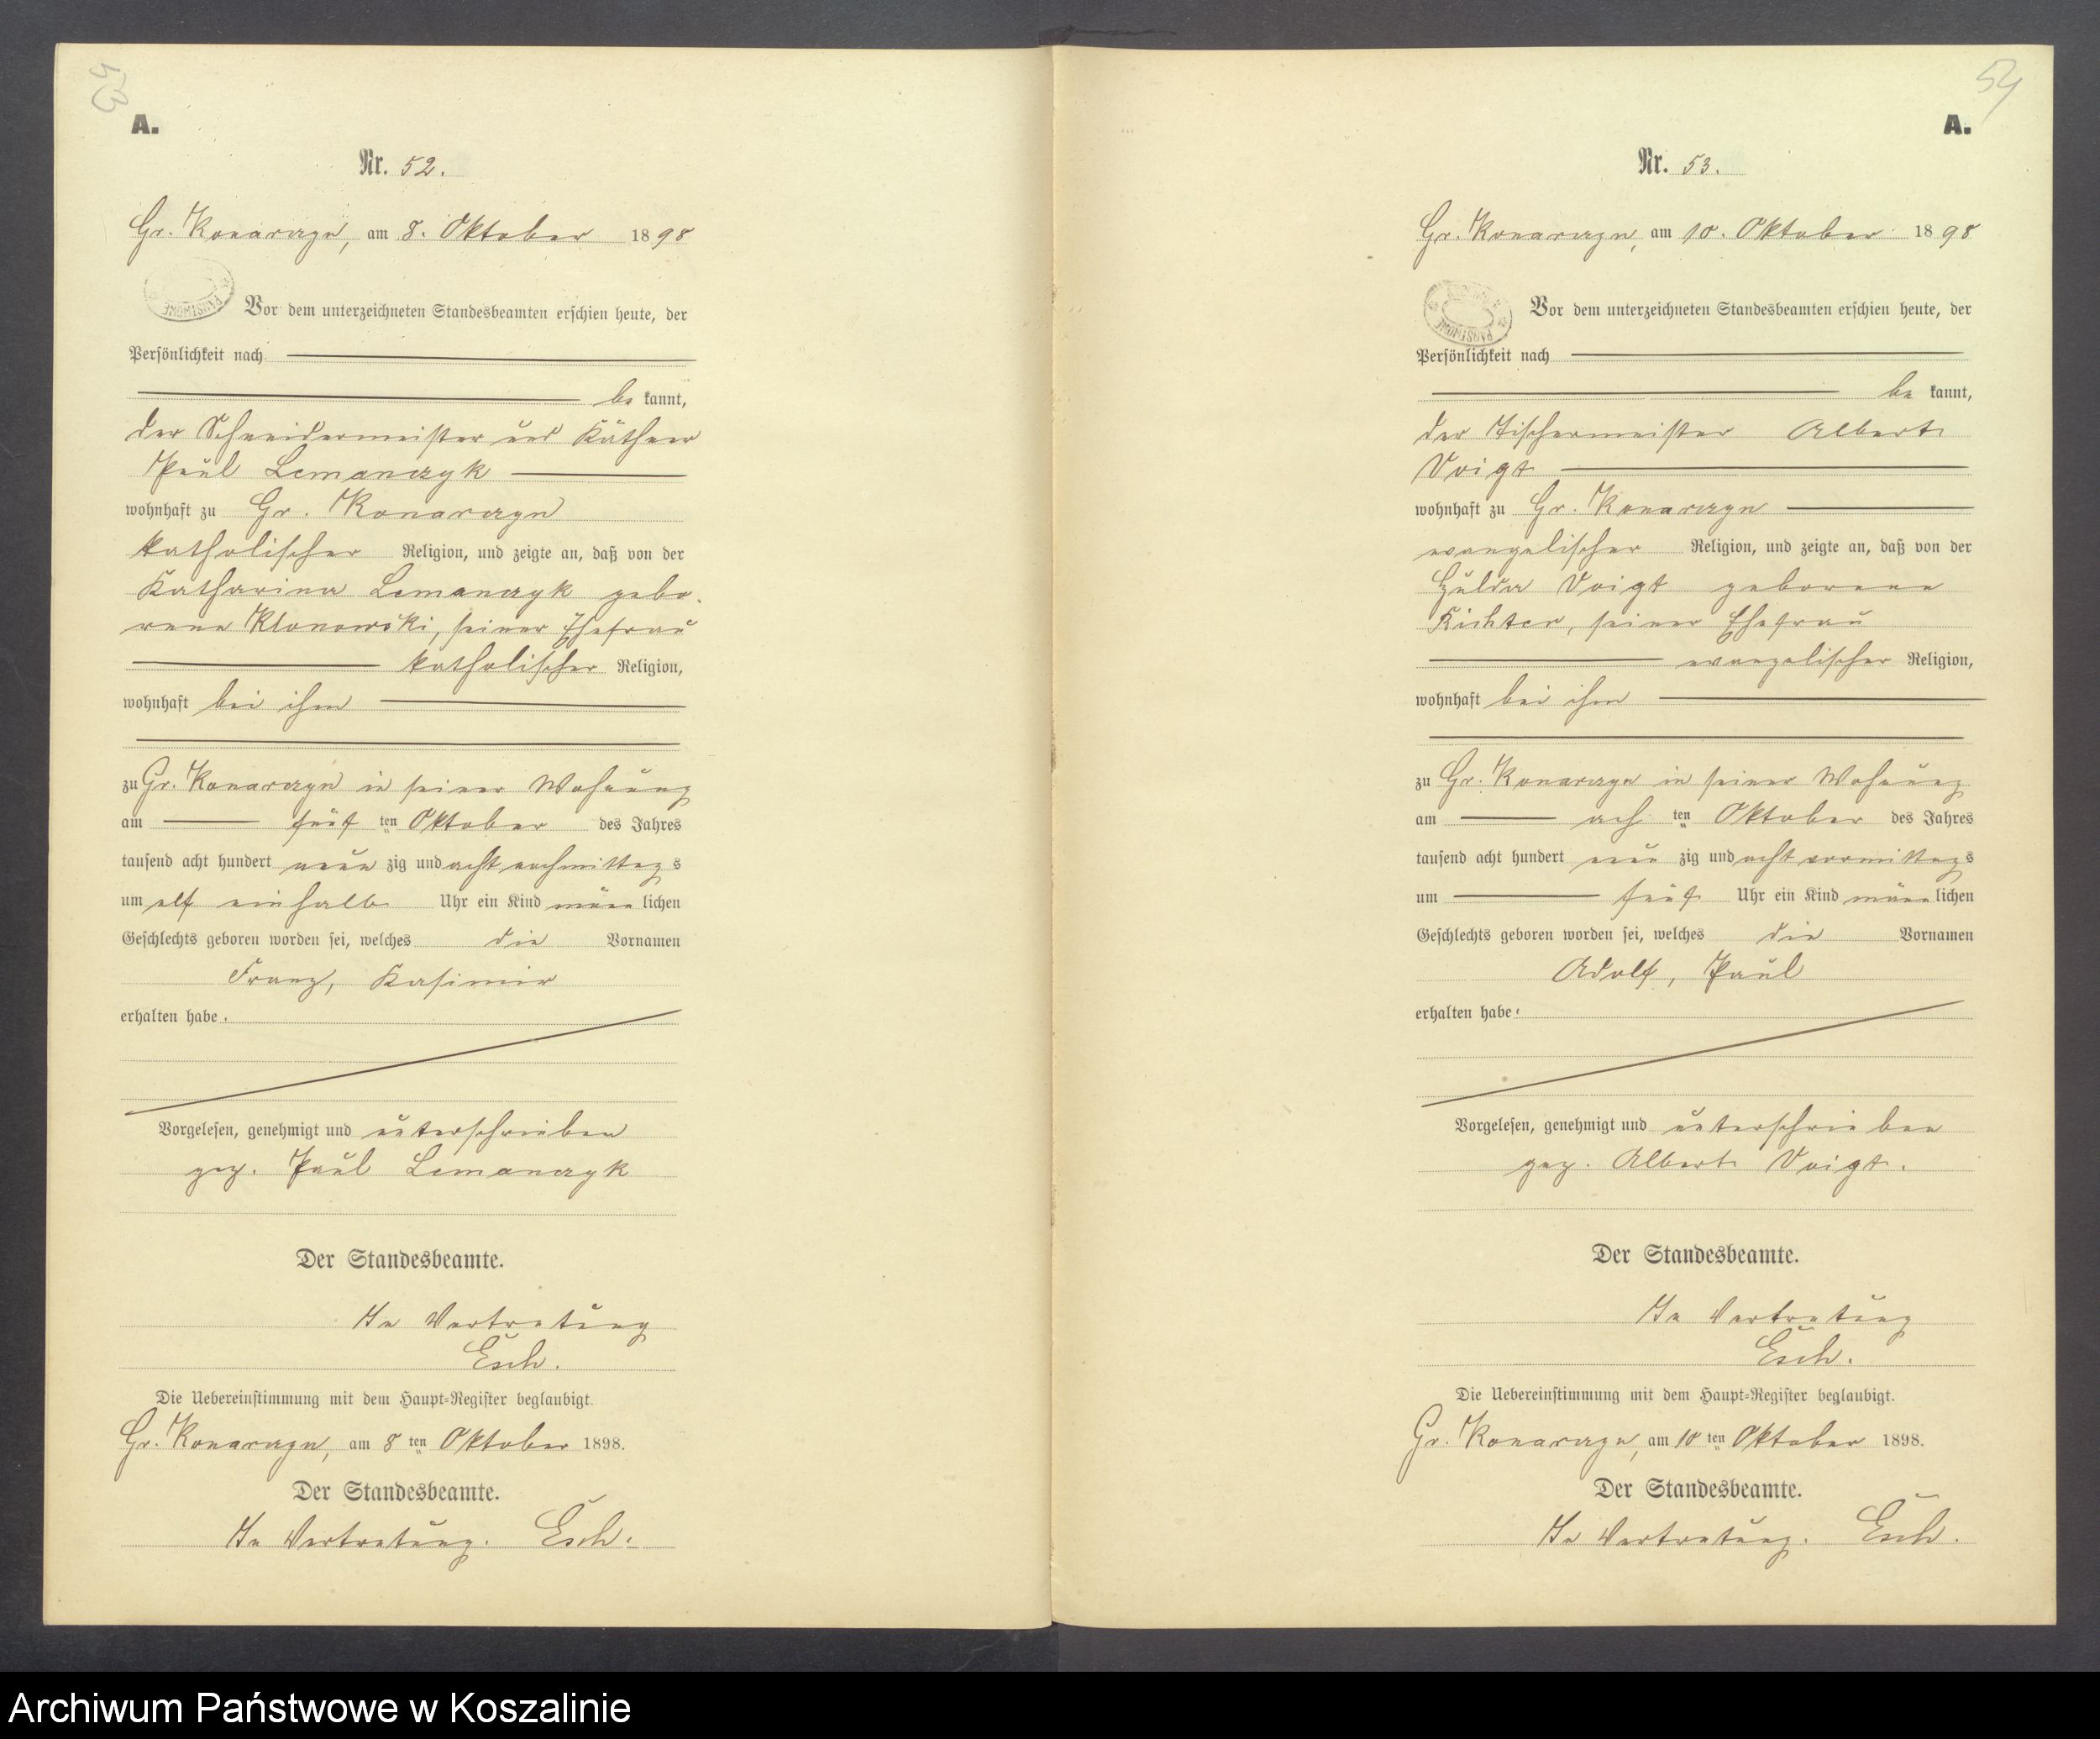 53
A.
Nr. 52.
Gr. Konarczyn, am 8. Oktober 1898
Vor dem unterzeichneten Standesbeamten erschien heute, der
Persönlichkeit nach
be kannt,
der Schneidermeister und Käthner
Paul Lemanczyk
wohnhaft zu Gr. Konarczyn
katholischer Religion, und zeigte an, daß von der
Katharina Lemanczyk gebo-
rene Klonowski, seiner Ehefrau
katholischer Religion,
wohnhaft bei ihm
zu Gr. Konarczyn in seiner Wohnung
am fünf ten Oktober des Jahres
tausend acht hundert neun zig und acht nachmittag s
um elf einhalb Uhr ein Kind männ lichen
Geschlechts geboren worden sei, welches die Vornamen
Franz, Kasimir
erhalten habe.
Vorgelesen, genehmigt und unterschrieben
gez. Paul Lemanczyk
Der Standesbeamte.
In Vertretung
Esch.
Die Uebereinstimmung mit dem Haupt-Register beglaubigt.
Gr. Konarczyn, am 8 ten Oktober 1898.
Der Standesbeamte.
In Vertretung. Esch.
54
A.
Nr. 53.
Gr. Konarczyn, am 10. Oktober 1898
Vor dem unterzeichneten Standesbeamten erschien heute, der
Persönlichkeit nach
be kannt,
der Tischermeister Albert
Voigt
wohnhaft zu Gr. Konarczyn
evangelischer Religion, und zeigte an, daß von der
Hulda Voigt geborene
Richter, seiner Ehefrau
evangelischer Religion,
wohnhaft bei ihm
zu Gr. Konarczyn in seiner Wohnung
am ach ten Oktober des Jahres
tausend acht hundert neun zig und acht vormittag s
um fünf Uhr ein Kind männ lichen
Geschlechts geboren worden sei, welches die Vornamen
Adolf, Paul
erhalten habe.
Vorgelesen, genehmigt und unterschrieben
gez. Albert Voigt.
Der Standesbeamte.
In Vertretung
Esch.
Die Uebereinstimmung mit dem Haupt-Register beglaubigt.
Gr. Konarczyn, am 10 ten Oktober 1898.
Der Standesbeamte.
In Vertretung. Esch.
Archiwum Państwowe w Koszalinie